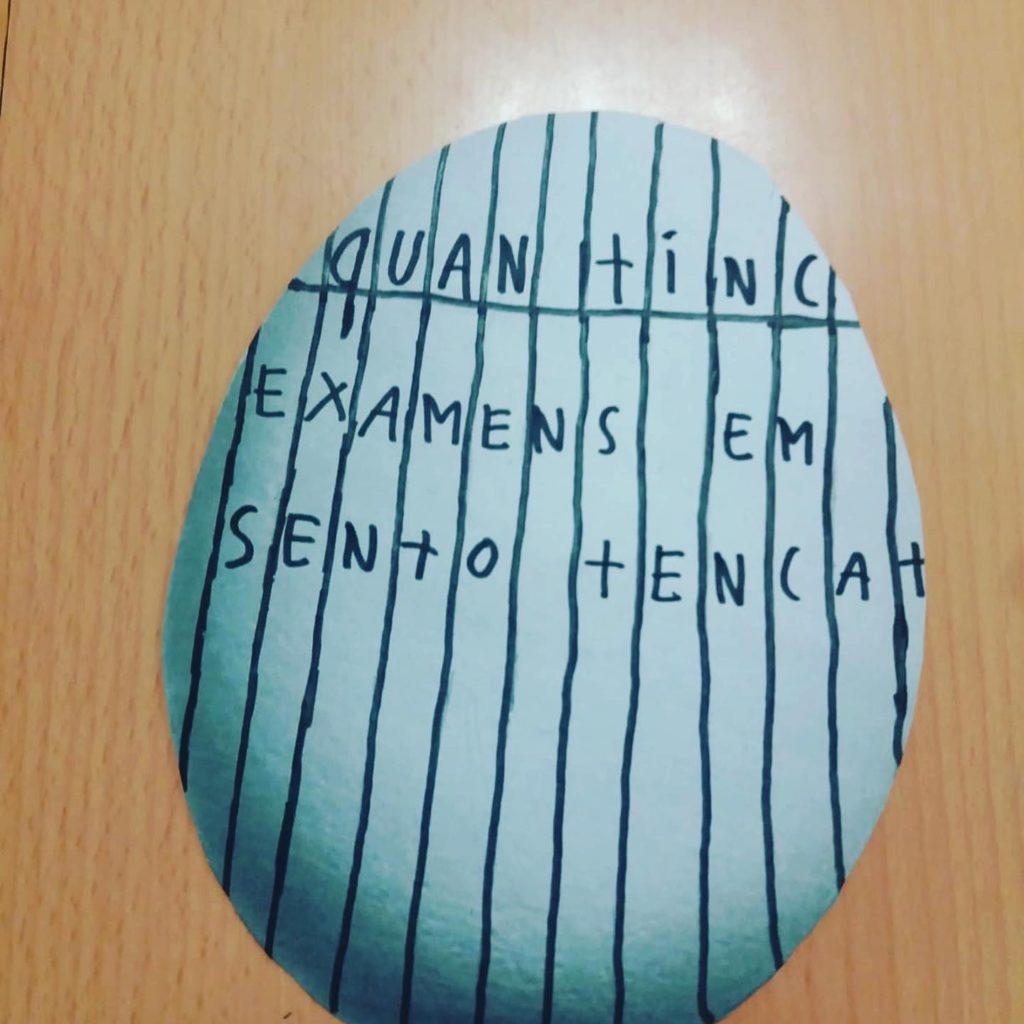 QUAN tiNC
EXAMENS EM
SENtO tENCAt